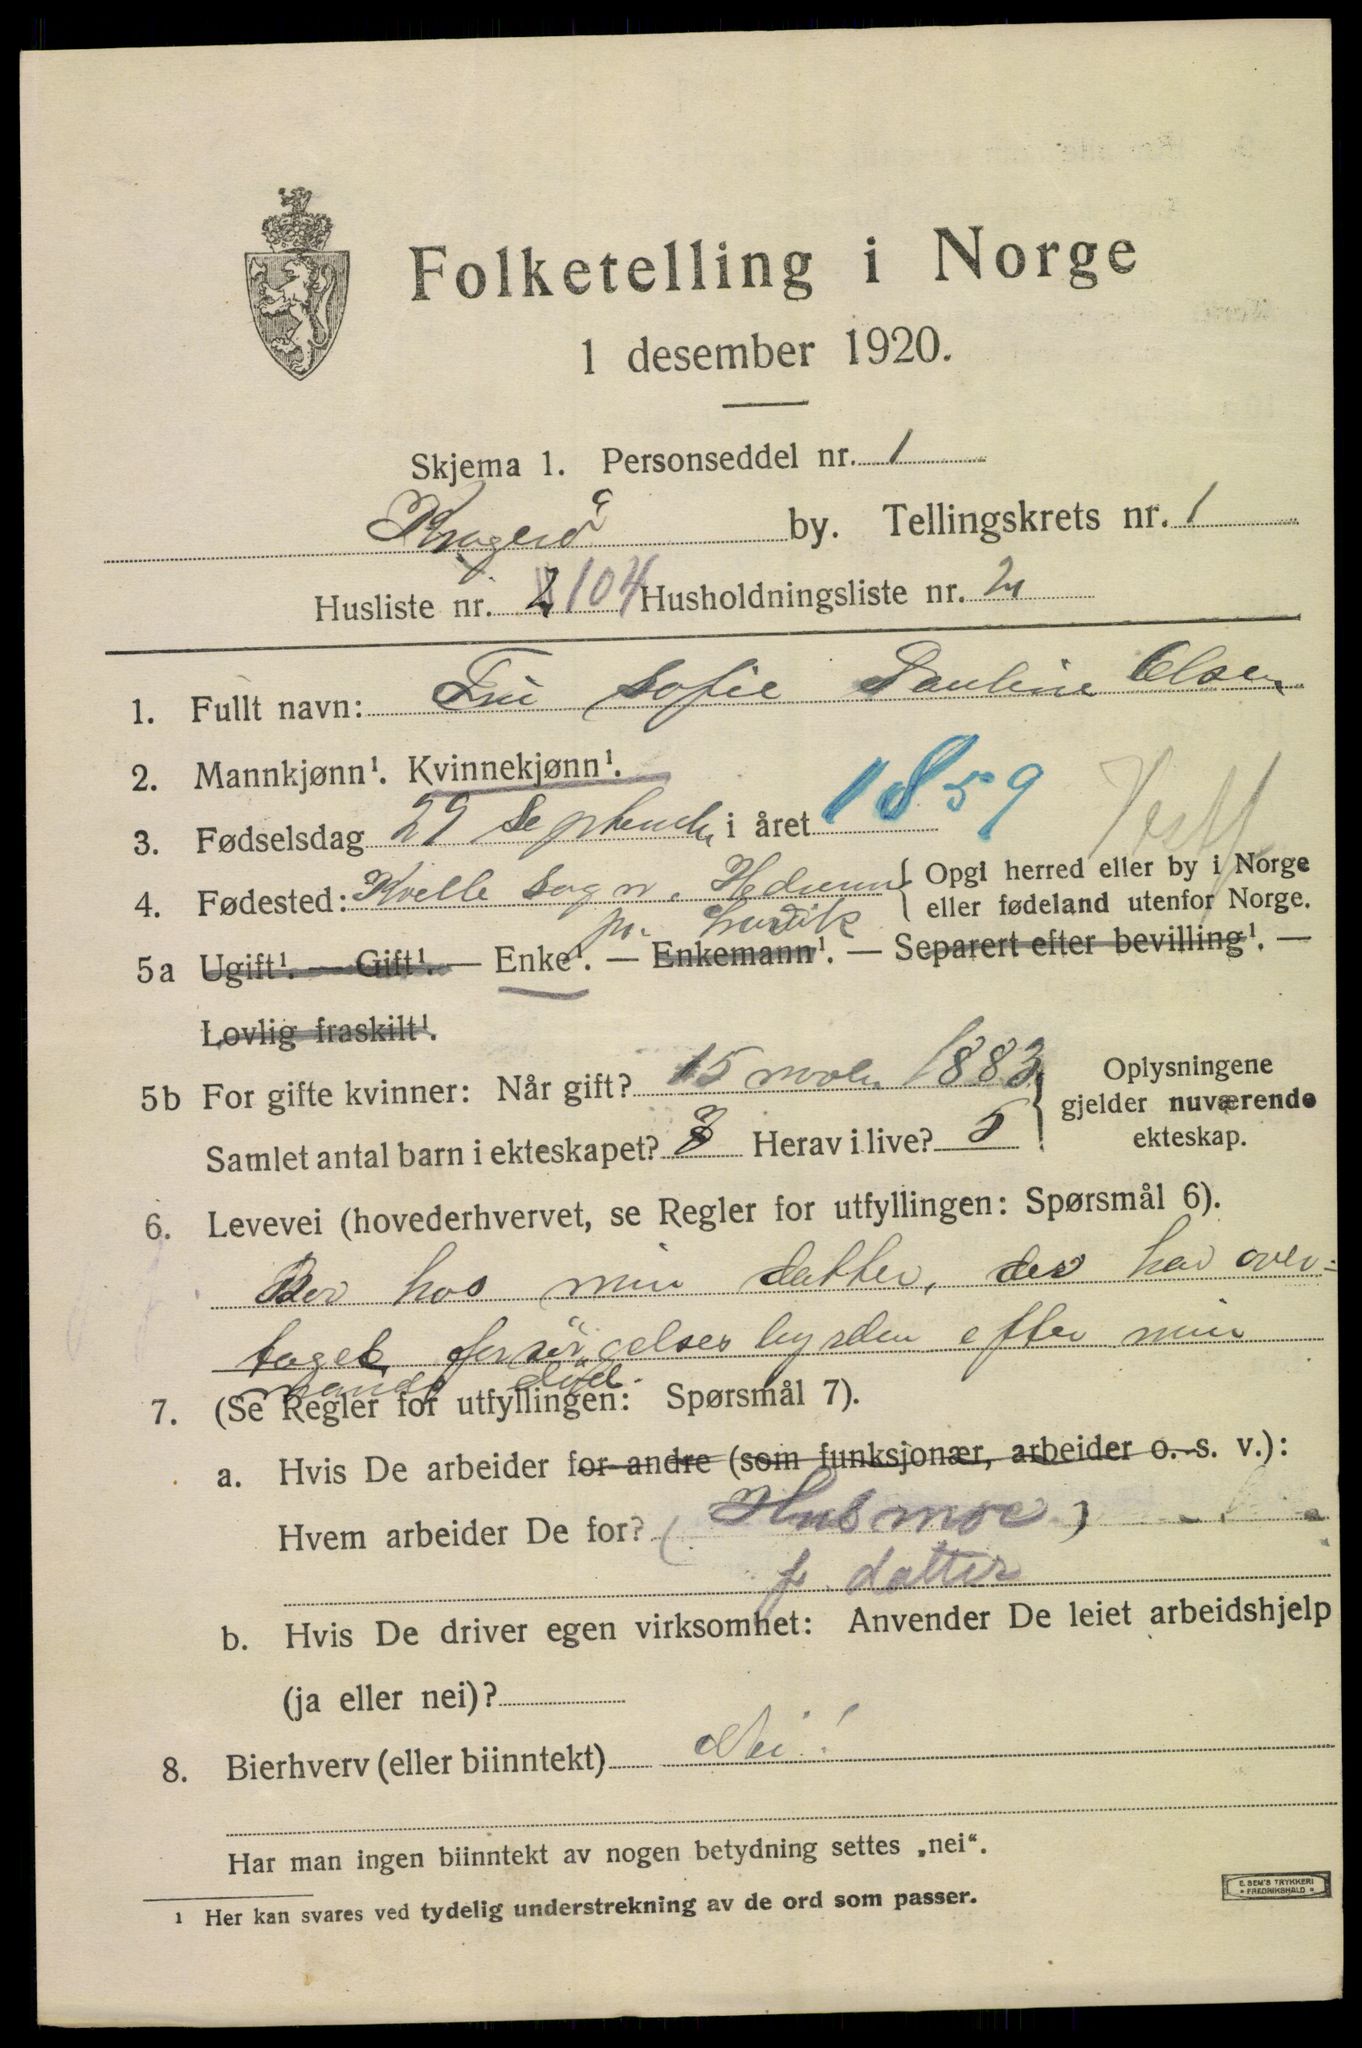 Folketelling i Norge
1 desember 1920.
Skjema 1. Personseddel nr. 1
Kragerø by. Tellingskrets nr. 1
Husliste nr. 2 104 Husholdningsliste nr. 2
1. Fullt navn: Fru Sofie Pauline Olsen
2. Mannkjønn¹. Kvinnekjønn¹.
3. Fødselsdag 29 September i året 1859
Vestf
4. Fødested: Kvelle Sogn. Hedrum
pr. Larvik
{ Opgi herred eller by i Norge
eller fødeland utenfor Norge.
5a Ugift¹. — Gift¹. — Enke¹. — Enkemann¹. — Separert efter bevilling¹. —
Lovlig fraskilt¹.
5b For gifte kvinner: Når gift? 15 novbr. 1883
Samlet antal barn i ekteskapet? 8 Herav i live? 5
} Oplysningene
gjelder nuværende
ekteskap.
6. Levevei (hovederhvervet, se Regler for utfyllingen: Spørsmål 6).
Bor hos min datter, der har over-
taget forsörgelsesbyrden efter min
mands död.
7. (Se Regler for utfyllingen: Spørsmål 7).
a. Hvis De arbeider for andre (som funksjonær, arbeider o. s. v.):
Hvem arbeider De for? (Husmor)
f. datter
b. Hvis De driver egen virksomhet: Anvender De leiet arbeidshjelp
(ja eller nei)?
8. Bierhverv (eller biinntekt) Nei!
Har man ingen biinntekt av nogen betydning settes „nei“.
¹ Her kan svares ved tydelig understrekning av de ord som passer.
E. SEM'S TRYKKERI
• FREDRIKSHALD •